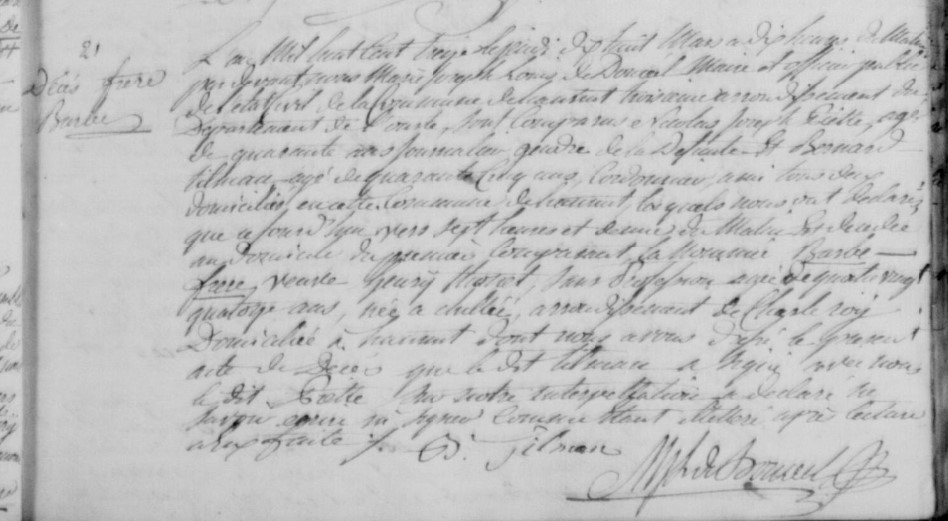 21
Décès frere
Barbe
L'an Mil huit Cent treize le jeudi dix huit Mars a dix heures du Matin
par devant nous Marie Joseph Louis de Donceel Maire et officier public
de letat Civil de la Commune de hannut troisieme arrondissement du
Departement de l'ourte, sont Comparus Nicolas Joseph agé
de quarante ans Journalier gendre de la Defunte et Bernard
tilman agé de quarante Cinq ans, Cordonnier, ami tous deux
domiciliés en cette Commune de hannut, lesquels nous ont declarez
que ce jourd'hyu vers sept heures et demie du Matin Est decedée
au Domicile du premier Comparant la Nommée Barbe
frere veuve henry sans profession agée de quatre vingt
quatorze ans, née a arrondissement de Charle roy
Domiciliée a hannut dont nous avons dressé le present
acte de Décès que le dit tilman a signé avec nous
le dit sur notre interpellation a declaré ne
savoir ecrire ni signer Comme etant illettré après lecture
a eux faite /. B. Tilman